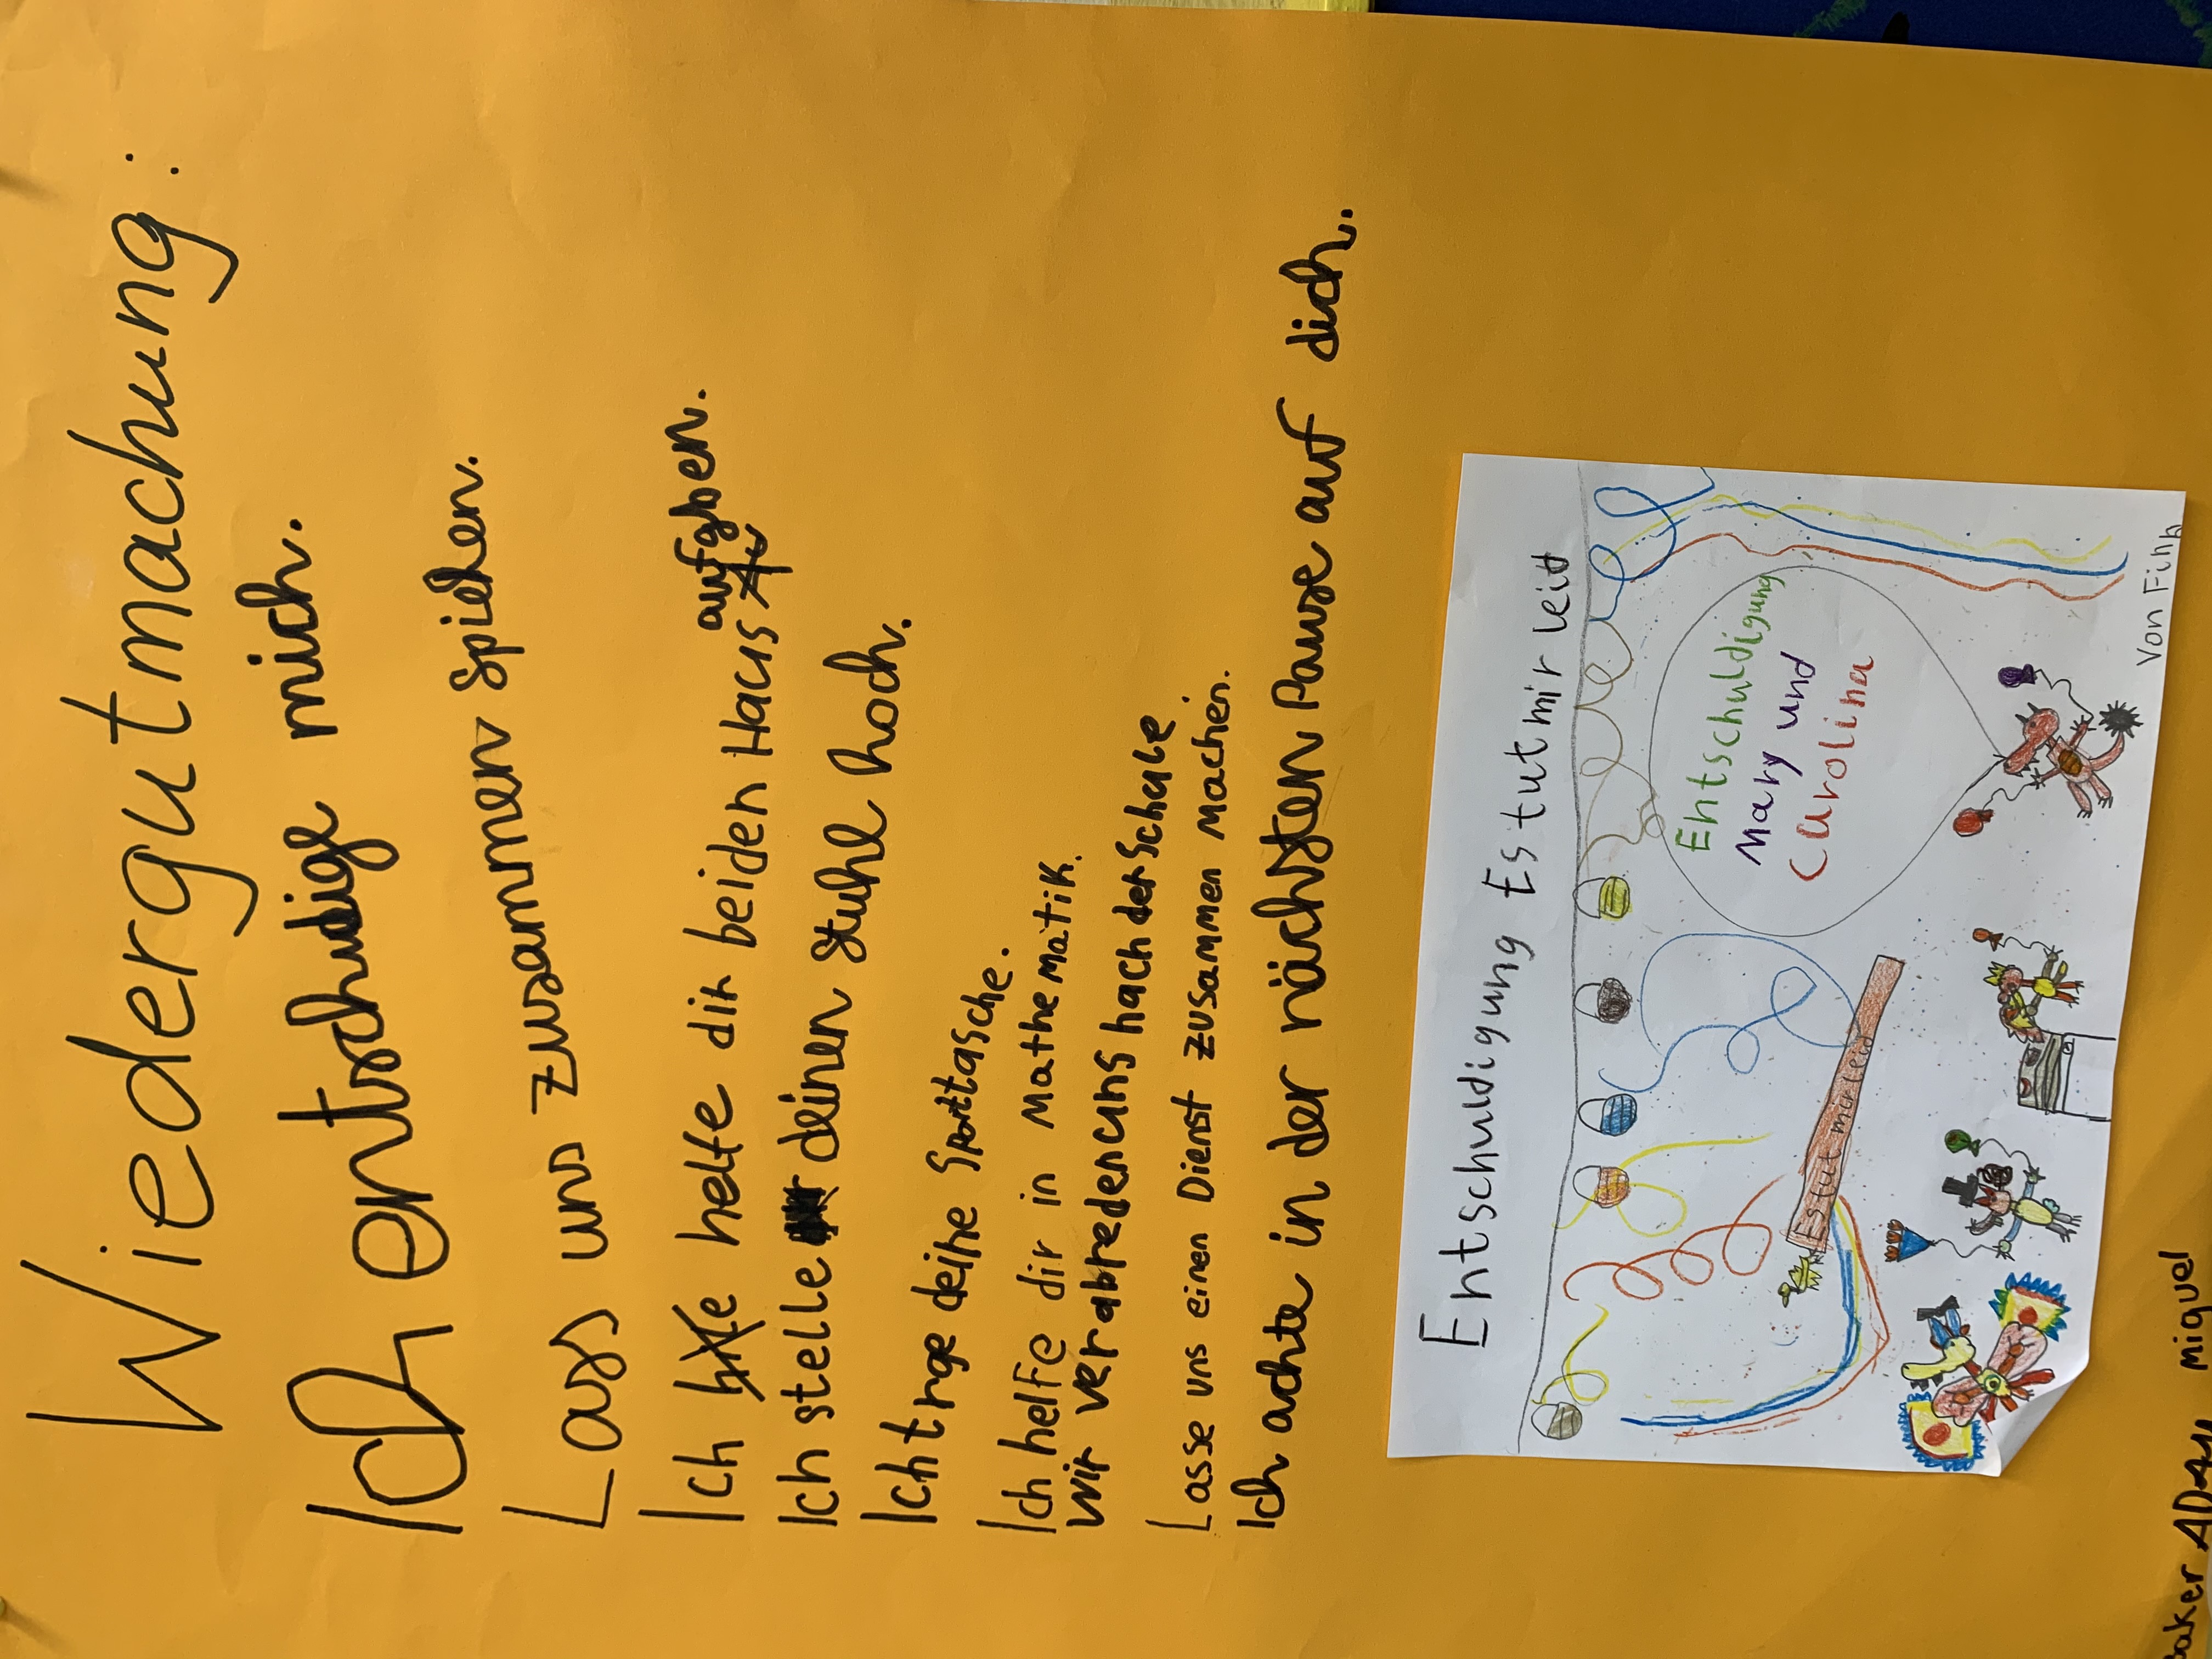 Wiedergutmachung:
Ich entschudige mich.
Lass uns zusammen spielen.
Ich helfe dir bei den Hausaufgben.
Ich stelle deinen stuhl hoch.
Ich trge deine Sporttasche.
Ich helfe dir in Mathematik.
Wir verabreden uns nach der Schule
Lasse uns einen Dienst zusammen machen.
Ich achte in der nächsten Pause auf dich.
Entschuldigung Es tut mir leid
Entschuldigung
Mary und
Carolina
Es tut mir leid
Von Finn
Miguel